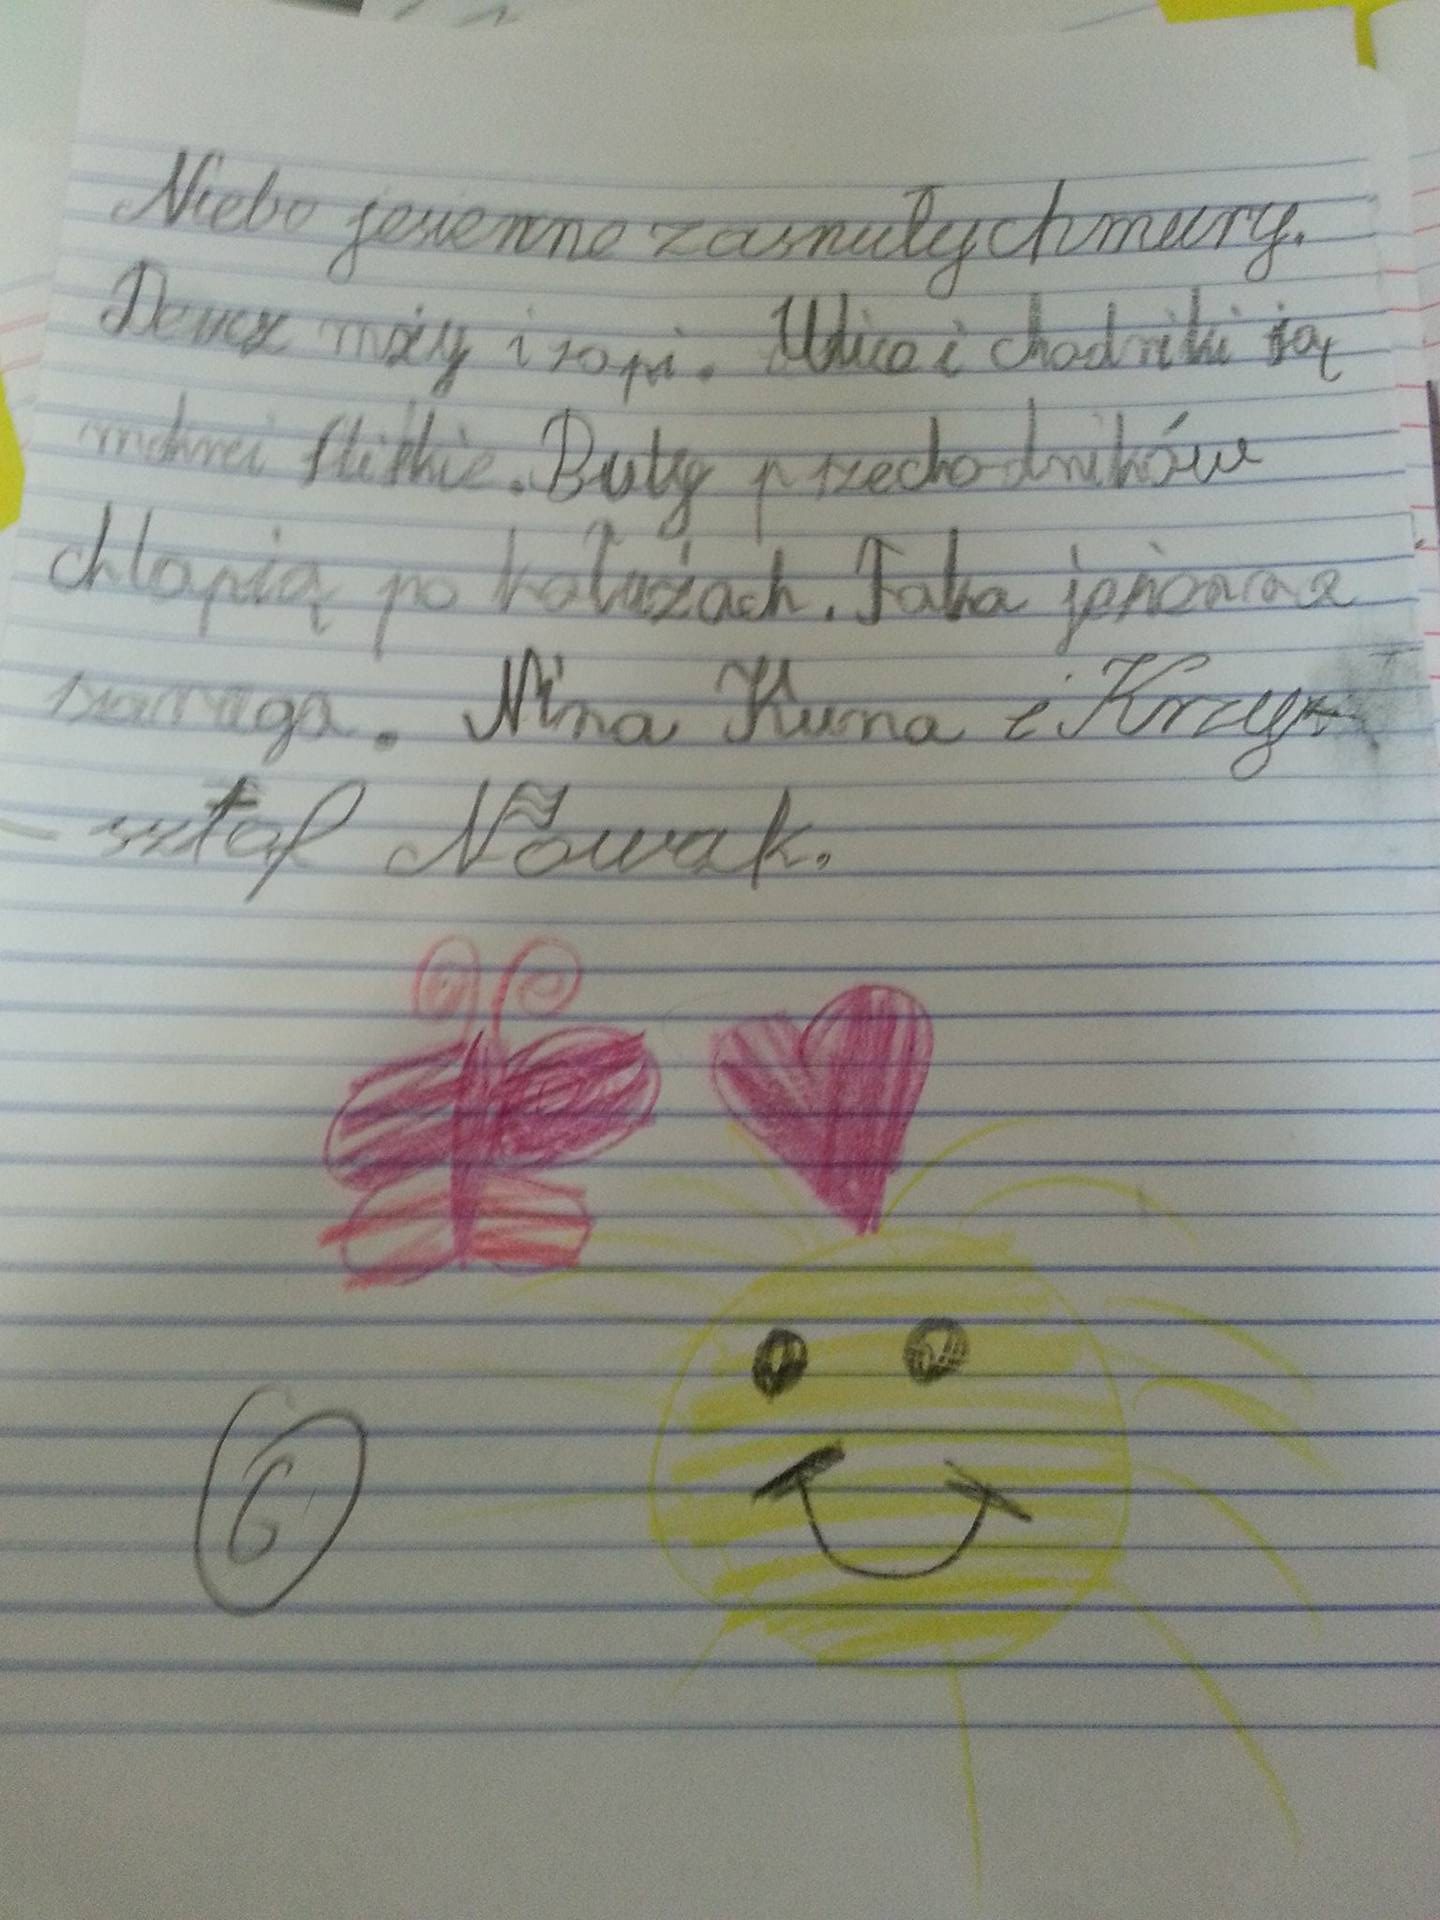 Niebo jesienne zasnuły chmury.
Deszcz mży i sapi. Ulice i chodniki są
mokre i śliskie. Buty przechodniów
chlapią po kałużach. Taka jesienna
szaruga. Nina Kuna i Krzy
sztof Nowak.
6